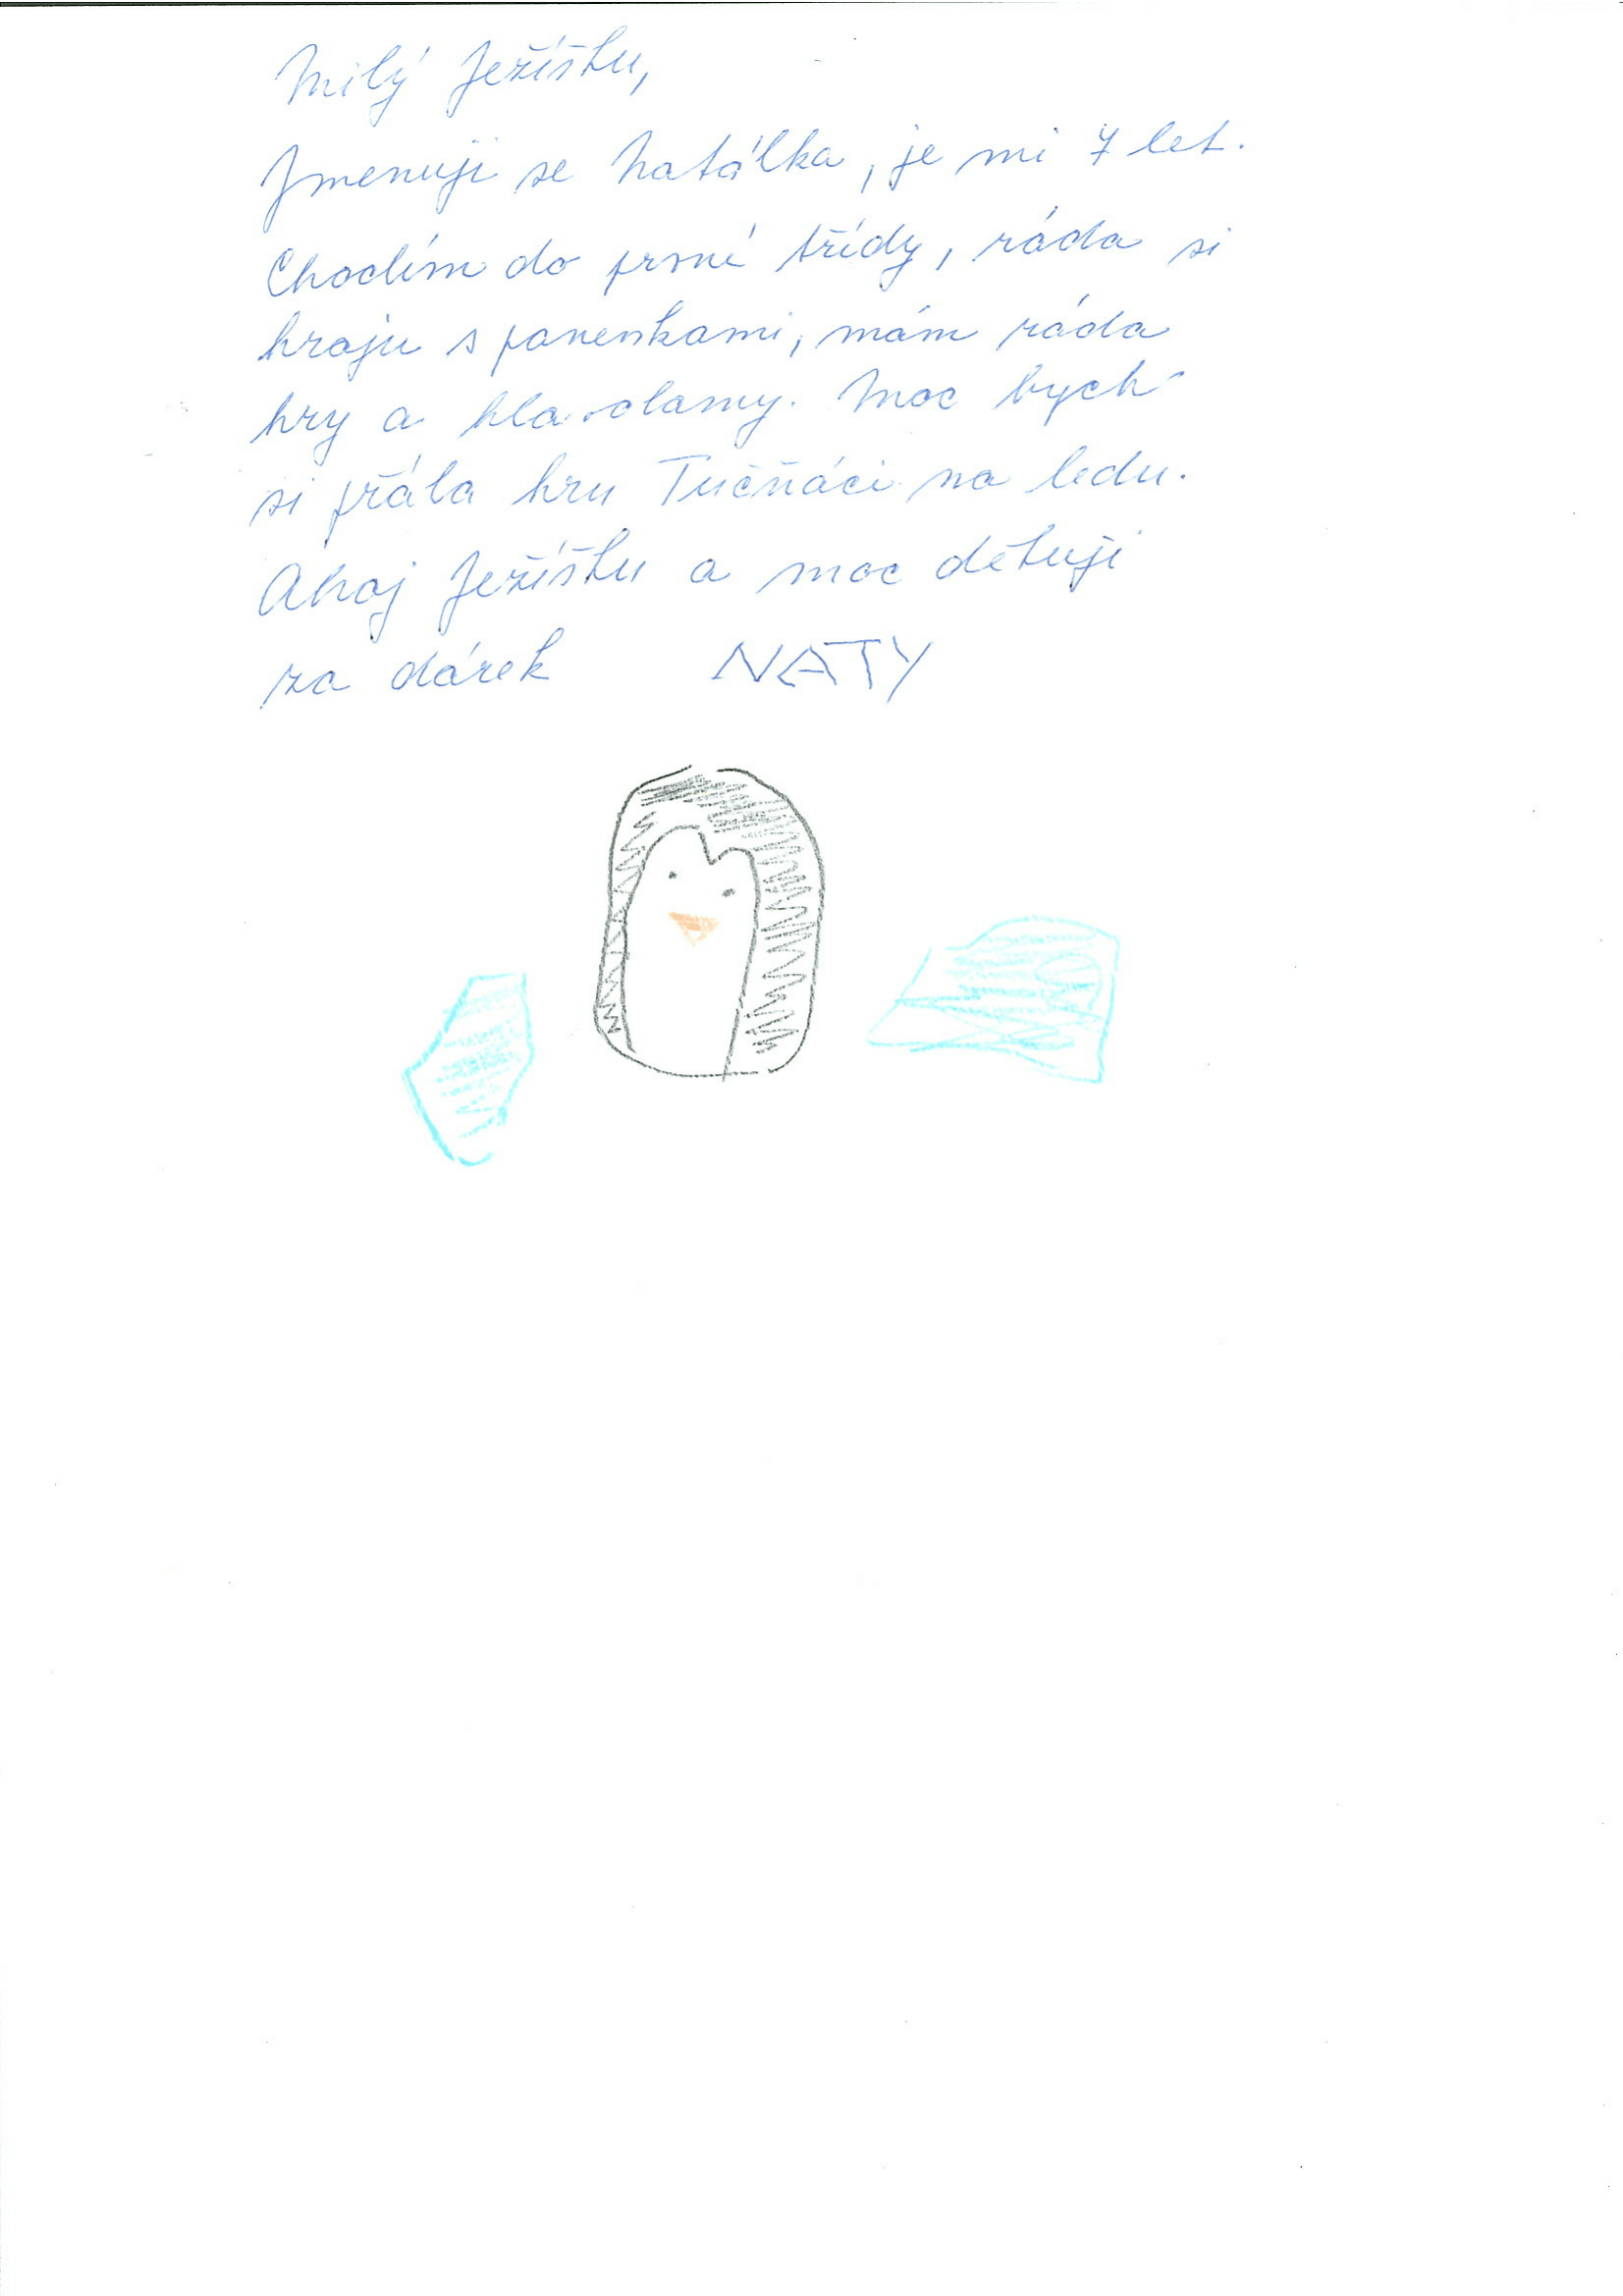 Milý Ježíšku,
Jmenuji se Natálka, je mi 7 let.
Chodím do prvné třídy, ráda si
hraju s panenkami, mám ráda
hry a hlavolamy. Moc bych
si přála hru Tučňáci na ledu.
Ahoj Ježíšku a moc děkuji
za dárek NATY